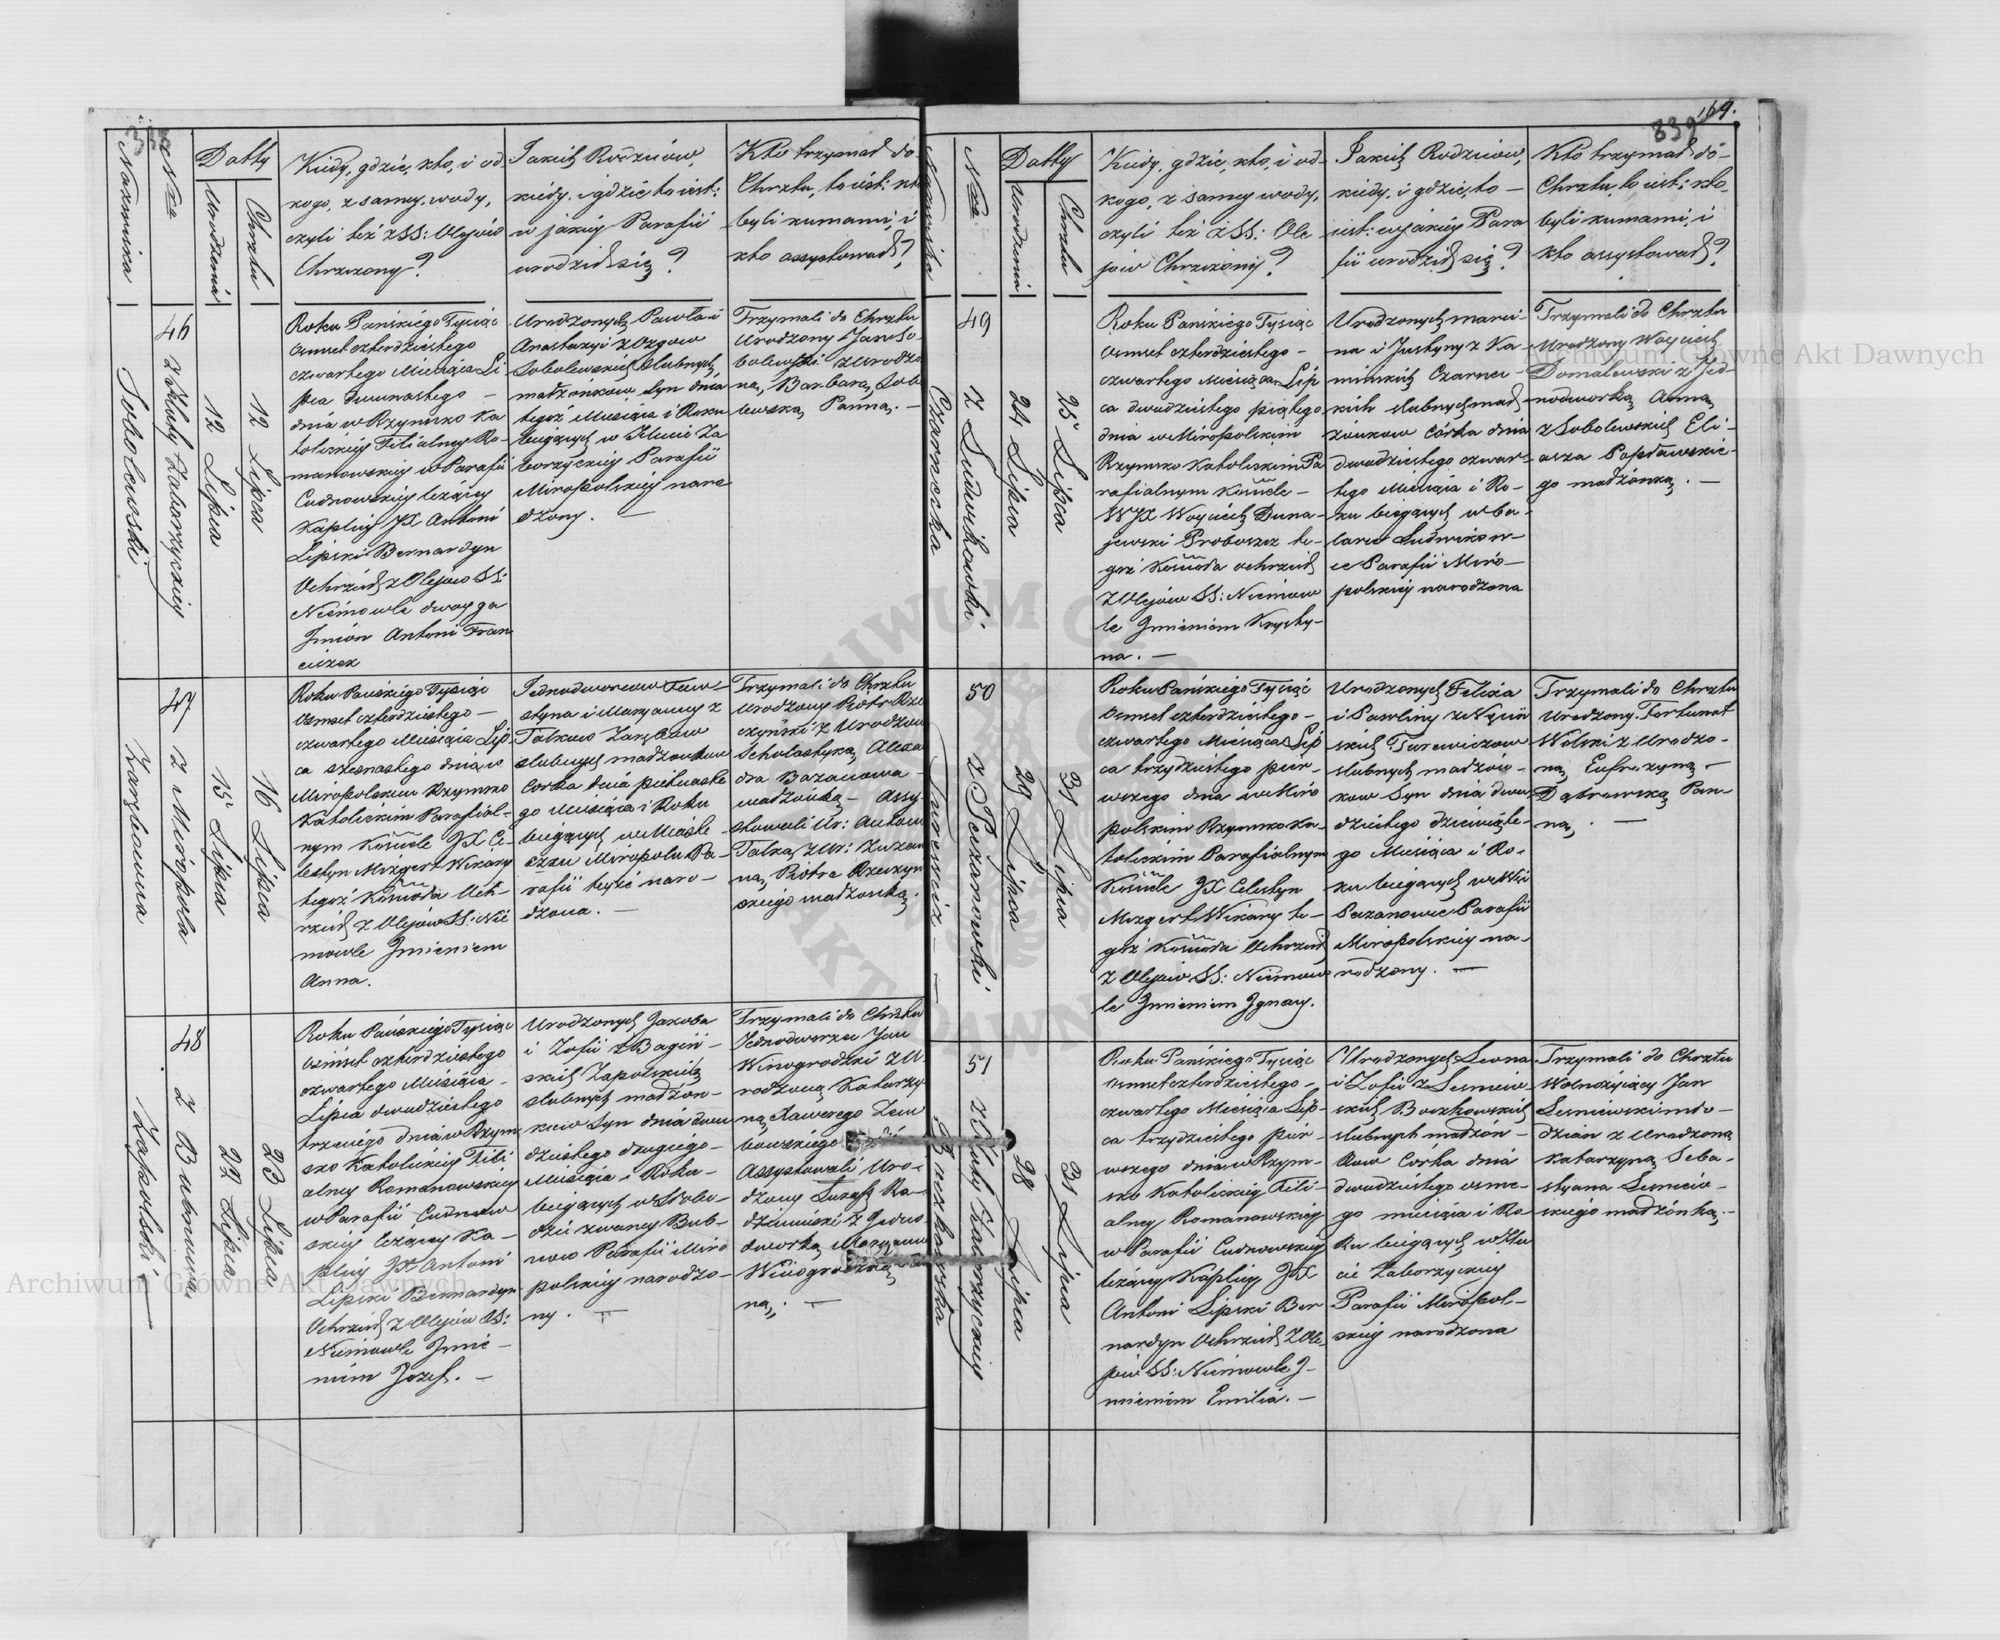 Nazwiska
Nro
Datty
Urodzenia
Chrztu
Kiedy, gdzie, kto, i od
kogo, z samey wody,
czyli też z SS: Olejów
Chrzczony?
Jakich Rodziców,
kiedy, i gdzie to iest:
w jakiey Parafii
urodził się?
Kto trzymał do
Chrztu, to iest: kto
byli kumami, i
kto assystował?
46
z Huty Zaborzyckiey
Sobolewski
12 Lipca
12 Lipca
Roku Pańskiego Tysiąc
osmset czterdziestego
czwartego Miesiąca Li-
pca dwunastego —
dnia w Rzymsko Ka
tolickiey Filialney Ro-
manowskiey w Parafii
Cudnowskiey leżącey
Kaplicy JX Antoni
Lipski Bernardyn
Ochrzcił z Olejów SS:
Niemowle dwoyga
Jmion Antoni Fran
ciszek
Urodzonych Pawła i
Anastazyi z
Sobolewskich slubnych
małżonków Syn dnia
tegoż Miesiąca i Roku
bieżących w Hucie Za
borzyckiey Parafii
Miropolskiey naro
dzony. —
Trzymali do Chrztu
Urodzony Jan So-
bolewski z Urodzo
ną Barbarą Sob
lewską Panną. —
47
z Miropola
Zarębowna
15 Lipca
16 Lipca
Roku Pańskiego Tysiąc
osmset czterdziestego —
czwartego Miesiąca Lip
ca szesnastego dnia w
Miropolskim Rzymsko
Katolickim Parafial-
nym Kościele JX Ce-
lestyn Mizgert Wikary
tegoż Kościoła Och-
rzcił z Olejów SS: Nie
mowle Jmieniem
Anna.
Jednodworców Faw-
styna i Maryanny z
Talków Zarębów
slubnych małżonków
Corka dnia pietnaste
go Miesiąca i Roku
bieżących w Miaste
czku Miropolu Pa-
rafii teyże naro-
dzona. —
Trzymali do Chrztu
Urodzony Piotr Rze
czyński z Urodzoną
Scholastyką Alexa
dra Bazanowa —
małżonką — Assy
stowali Ur: Antoni
Talka, z Ur: Zuzan
ną Piotra Rzeczyn
skiego małżonką.
48
z Bubnowa
Zapolski —
22 Lipca
23 Lipca
Roku Pańskiego Tysiąc
osmset czterdziestego
czwartego Miesiąca —
Lipca dwudziestego
trzeciego dnia w Rzym
sko Katolickiey Fili
alney Romanowskiey
w Parafii Cudnow
skiey leżącey Ka-
plicy JX Antoni
Lipski Bernardyn
Ochrzcił z Olejów SS:
Niemowle Jmie —
niem Jozef. —
Urodzonych Jakoba
i Zofii z Bagiń —
skich Zapolskich
slubnych małżon-
ków Syn dnia dwu
dziestego drugiego —
Miesiąca i Roku —
bieżących w Słobo-
dzie zwaney Bub-
now Parafii Miro
polskiey narodzo-
ny. —
Trzymali do Chrztu
Jednodworzec Jan
Winogrodzki z U-
rodzoną Katarzy
ną Xawerego Zem
bowskiego
Assystowali Uro-
dzony Jozef Ra-
dzimiński z Jedno-
dworką Maryanną
Winogrodzką Pan
ną. —
839
169.
Nazwiska
Nro
Datty
Urodzenia
Chrztu
Kiedy, gdzie, kto, i od-
kogo, z samey wody,
czyli też z SS: Ole
jow Chrzczony?
Jakich Rodziców,
kiedy, i gdzie, to —
iest: w jakiey Para
fii urodził się?
Kto trzymał do-
Chrztu, to iest: kto-
byli kumami, i
kto assystował?
49
z Ludwikowki
Czarnecka
24 Lipca
25 Lipca
Roku Pańskiego Tysiąc
osmset czterdziestego —
czwartego Miesiąca Lip
ca dwudziestego piątego
dnia w Miropolskim
Rzymsko Katolickim Pa
rafialnym Kościele —
WJX Woyciech Duna-
jewski Proboszcz te-
goż Kościoła ochrzcił
z Olejów SS: Niemow
le Jmieniem Krysty-
na. —
Urodzonych Marci-
na i Justyny z Ka-
mińskich Czarnec-
kich slubnych mał-
żonkow Córka dnia
dwudziestego czwar-
tego Miesiąca i Ro-
ku bieżących w Fu-
torze Ludwikow-
ce Parafii Miro-
polskiey narodzona
Trzymali do Chrztu
Urodzony Woyciech
Domalewski z Jed-
nodworką Anną
z Sobolewskich Eli-
asza Popławskie-
go małżonką. —
50
z Peczanowki
Turewicz —
29 Lipca
31 Lipca
Roku Pańskiego Tysiąc
osmset czterdziestego —
czwartego Miesiąca Lip
ca trzydziestego pier-
wszego dnia w Miro
polskim Rzymsko Ka-
tolickim Parafialnym
Kościele JX Celestyn
Mizgert Wikary te-
goż Kościoła Ochrzcił
z Olejów SS: Niemow
le Jmieniem Jgnacy.
Urodzonych Felixa
i Pawliny z
skich Turewiczow
slubnych małżon-
kow Syn dnia dwu
dziestego dziewiąte-
go Miesiąca i Ro-
ku bieżących we Wsi
Peczanowce Parafii
Miropolskiey na-
rodzony. —
Trzymali do Chrztu
Urodzony Fortunat
Wolski z Urodzo-
ną Eufrozyną —
Dąbrowską Pan-
ną. —
51
z Huty Zaborzyckiey
Buczkowska
28 Lipca
31 Lipca
Roku Pańskiego Tysiąc
osmset czterdziestego —
czwartego Miesiąca Lip-
ca trzydziestego pier-
wszego dnia w Rzym-
sko Katolickiey Fili-
alney Romanowskiey
w Parafii Cudnowskiey
leżącey Kaplicy JX
Antoni Lipski Ber
nardyn Ochrzcił z Ole-
jów SS: Niemowle J-
mieniem Emilia. —
Urodzonych Leona
i Zofii z Lesniew-
skich Buczkowskich
slubnych małżon-
kow Corka dnia
dwudziestego osme-
go miesiąca i Ro-
ku bieżących w Hu
cie Zaborzyckiey
Parafii Miropol-
skiey narodzona
Trzymali do Chrztu
Wolnożyjący Jan
Lesniewski mło-
dzian z Urodzoną
Katarzyną Seba-
styana Lesniew-
skiego małżonką. —
Archiwum Główne Akt Dawnych
Archiwum Główne Akt Dawnych